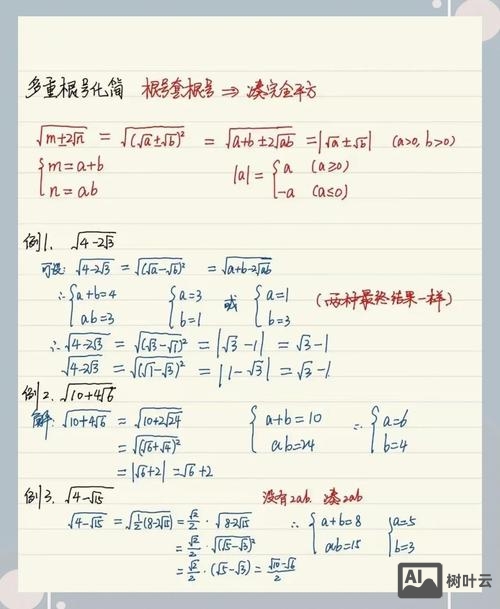 多重根号化简 根号套根号 ⇒ 凑完全平方
√(m±2√n) = √((√a±√b)²) = √(a+b±2√(ab)) = |√a±√b| (a>0, b>0)
{m=a+b
n=ab
|a| = {a (a≥0)
-a (a≤0)
例1. √(4-2√3)
可设: √(4-2√3) = √((√a-√b)²) = √(a+b-2√(ab))
∴ {a+b=4
ab=3
{a=3
b=1
或 {a=1
b=3
(两种最终结果一样)
∴ √(4-2√3) = √((√3-√1)²) = |√3-1| = √3-1
√(4-2√3) = √((√1-√3)²) = |1-√3| = √3-1
例2. √(10+4√6)
解: √(10+4√6) = √(10+2√24)
= √((√6+√4)²)
= |√6+2| = √6+2
{a+b=10
ab=24
∴ {a=6
b=4
例3. √(4-√15)
没有2ab, 凑2ab
√(4-√15) = √(½(8-2√15)) = √2/2 · √(8-2√15)
= √2/2 · √((√5-√3)²)
= √2/2 · (√5-√3) = (√10-√6)/2
∴ {a+b=8
ab=15
{a=5
b=3
AI 树叶云